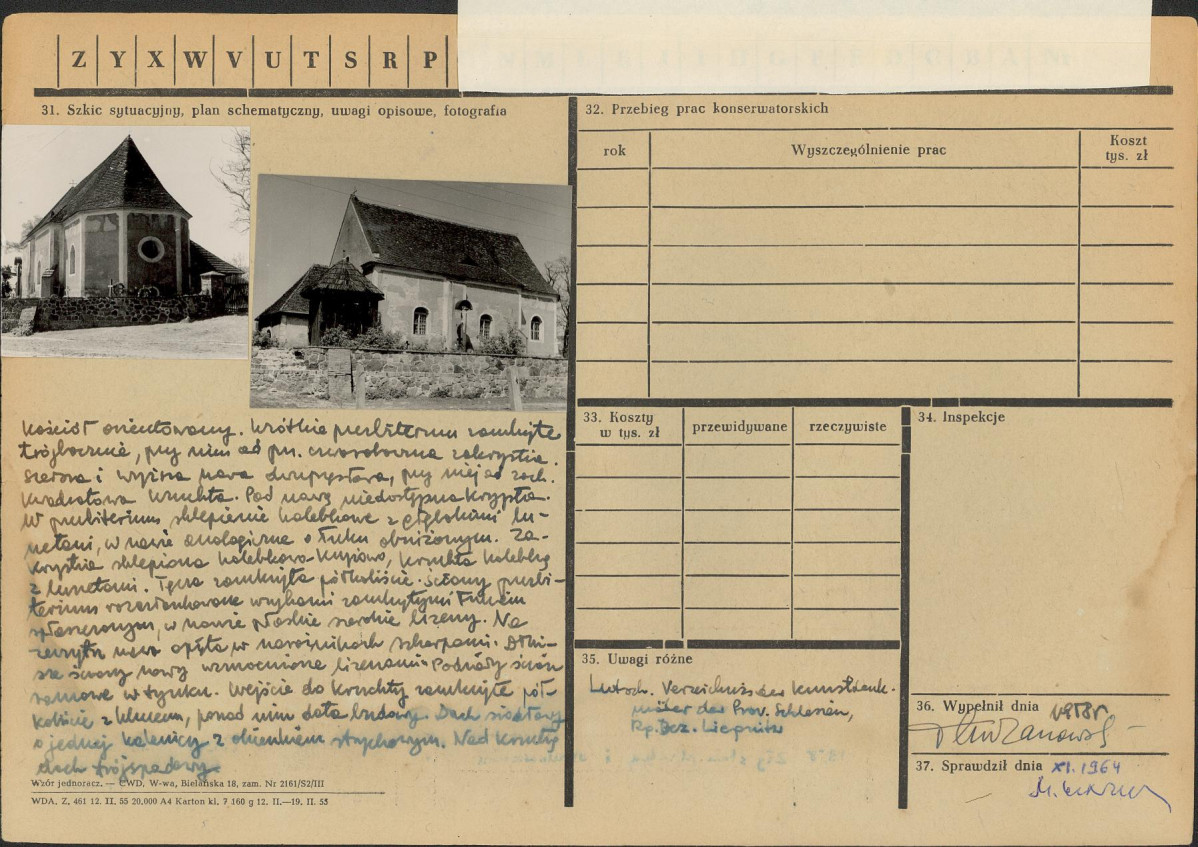 Z Y X W V U T S R P
31. Szkic sytuacyjny, plan schematyczny, uwagi opisowe, fotografia
Kościół orientowany. Krótkie prezbiterium zamknięte
trójbocznie, przy nim od pn. czworoboczna zakrystia.
Szersza i wyższa nawa dwuprzęsłowa, przy niej od zach.
kwadratowa kruchta. Pod nawą niedostępna krypta.
W prezbiterium sklepienie kolebkowe z głębokimi lu-
netami, w nawie analogiczne o łuku obniżonym. Za-
krystia sklepiona kolebkowo-krzyżowo, kruchta kolebką
z lunetami. Tęcza zamknięta półkoliście. Ściany prezbi-
terium rozczłonkowane wnękami zamkniętymi łukiem
spłaszczonym, w nawie płaskie szerokie lizeny. Na
zewnątrz nawa opięta w narożnikach szkarpami. Dłuż-
sze ściany nawy wzmocnione lizenami. Podziały ścian
ramowe w tynku. Wejście do kruchty zamknięte pół-
koliście z kluczem, ponad nim data budowy. Dach siodłowy
o jednej kalenicy z okienkiem strychowym. Nad kruchtą
dach trójspadowy.
Wzór jednoracz. — CWD, W-wa, Bielańska 18, zam. Nr 2161/S2/III
WDA. Z. 461 12. II. 55 20.000 A4 Karton kl. 7 160 g 12. II.—19. II. 55
32. Przebieg prac konserwatorskich
rok
Wyszczególnienie prac
Koszt
tys. zł
33. Koszty
w tys. zł
przewidywane
rzeczywiste
34. Inspekcje
35. Uwagi różne
Lutsch. Verzeichnis der Kunstdenk-
mäler der Prov. Schlesien,
Rg. Bez. Liegnitz
36. Wypełnił dnia
37. Sprawdził dnia XI. 1964